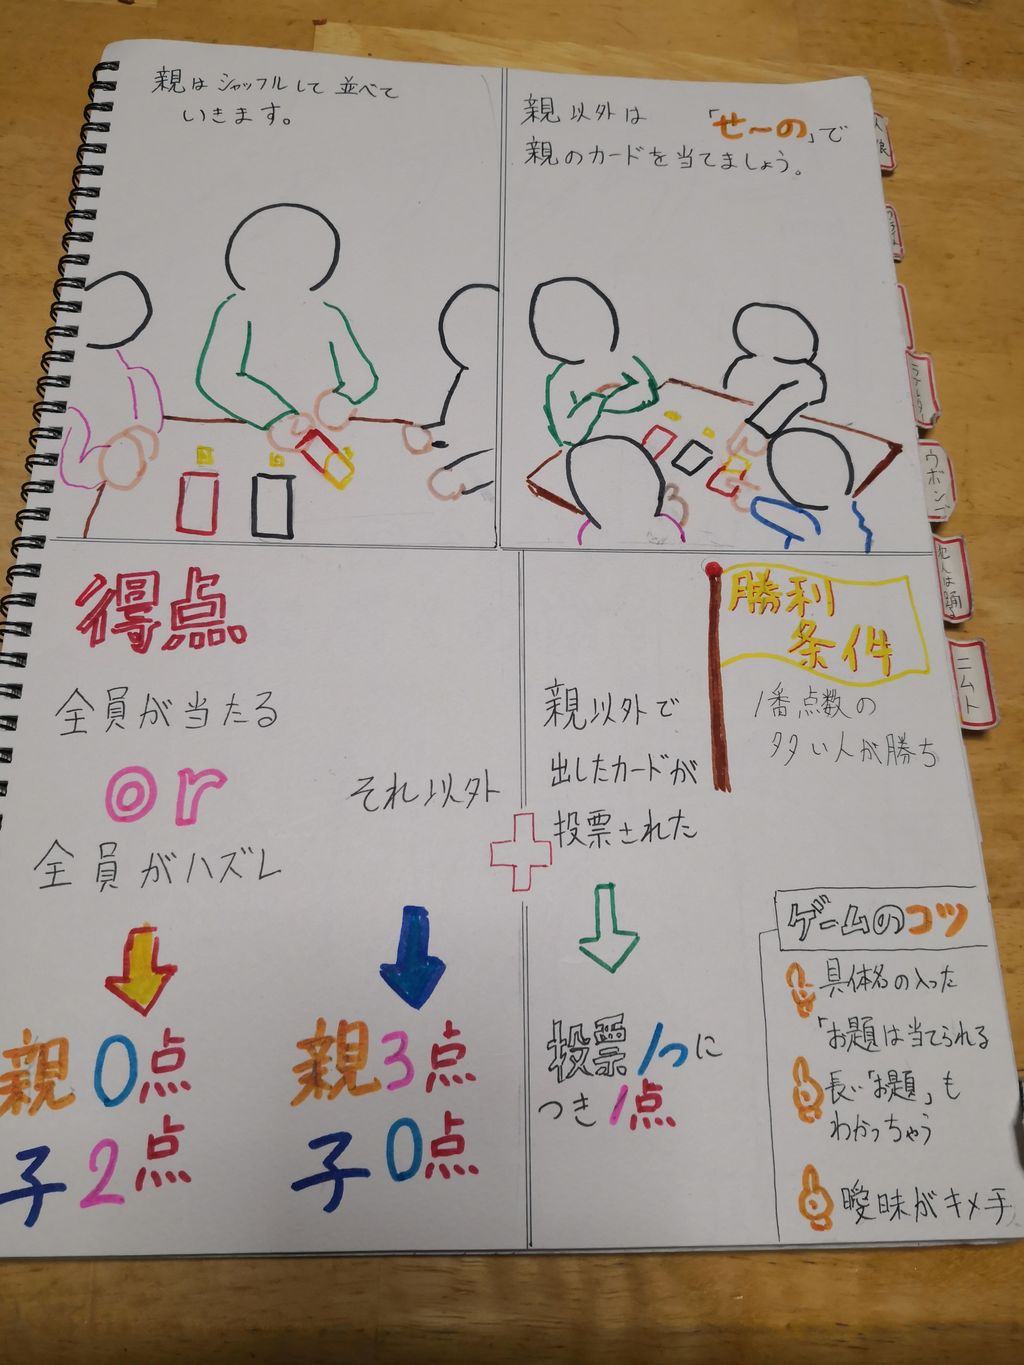 親はシャッフルして並べて
いきます。
親以外は「せーの」で
親のカードを当てましょう。
得点
全員が当たる
or
全員がハズレ
それ以外
親0点
子2点
親3点
子0点
親以外で
出したカードが
投票された
投票1つに
つき1点
勝利
条件
1番点数の
多い人が勝ち
ゲームのコツ
具体名の入った
「お題は当てられる
長い「お題」も
わかっちゃう
曖昧がキメ手
ウボンゴ
犯人は踊る
ニムト